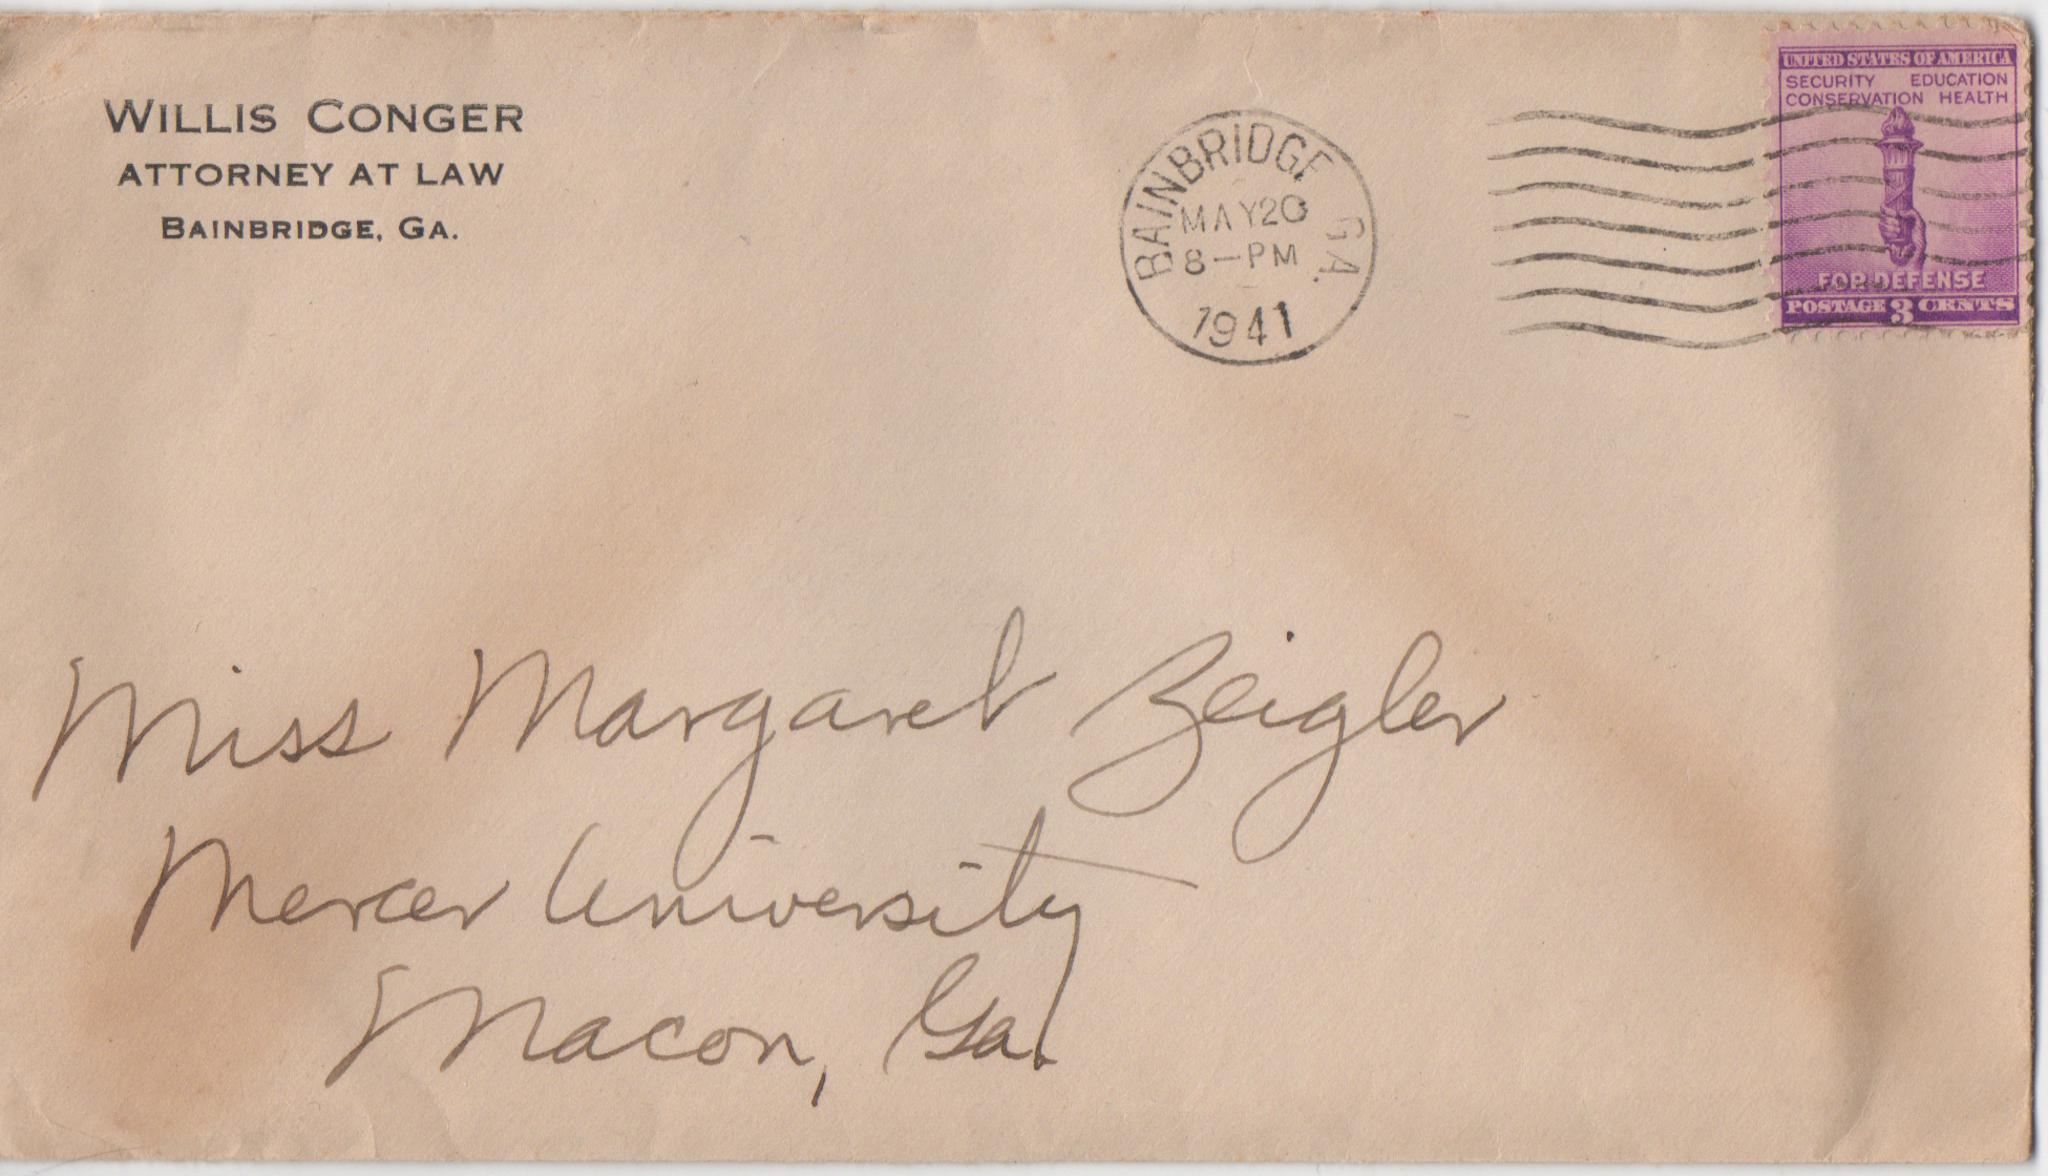 WILLIS CONGER
ATTORNEY AT LAW
BAINBRIDGE, GA.
BAINBRIDGE GA.
MAY 20
8-PM
1941
UNITED STATES OF AMERICA
SECURITY EDUCATION
CONSERVATION HEALTH
FOR DEFENSE
POSTAGE 3 CENTS
Miss Margaret Zeigler
Mercer University
Macon, Ga.